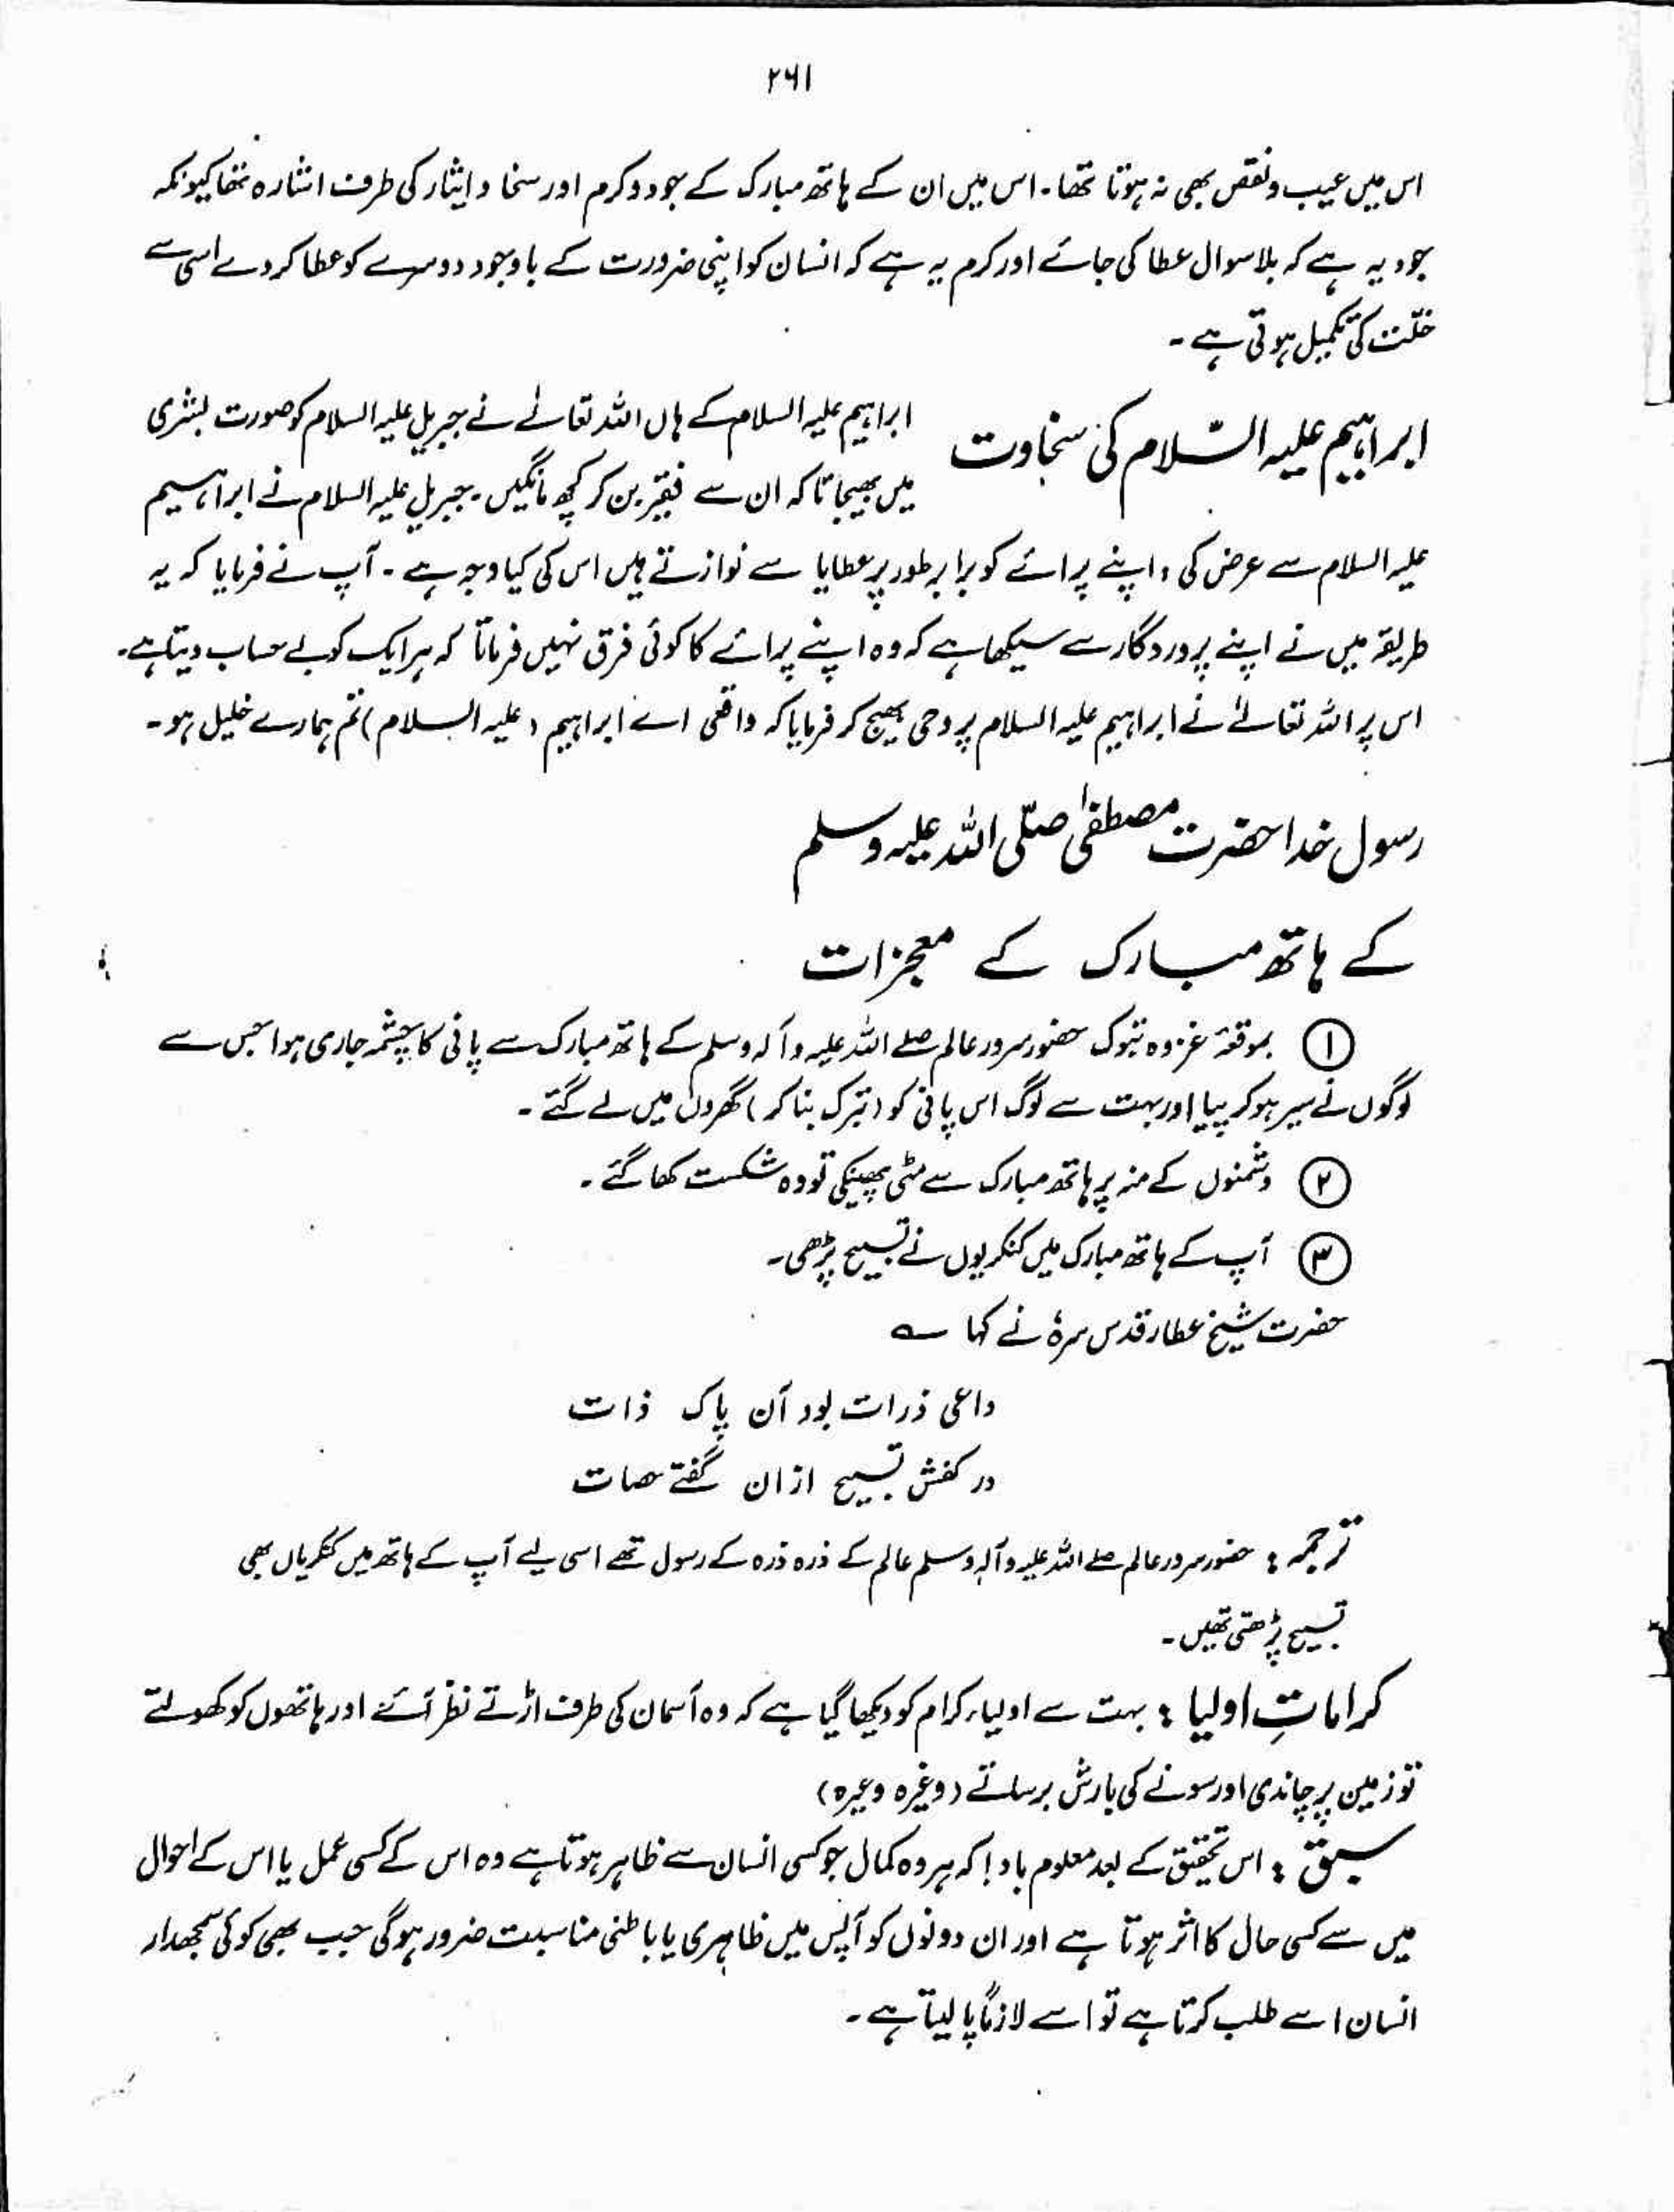 ۲۶۱
اس میں عیب و نقص بھی نہ ہوتا تھا۔ اس میں ان کے ہاتھ مبارک کے جود و کرم اور سخا و ایثار کی طرف اشارہ تھا کیونکہ
جود یہ ہے کہ بلا سوال عطا کی جائے اور کرم یہ ہے کہ انسان کو اپنی ضرورت کے باوجود دوسرے کو عطا کر دے اسی سے
خلّت کی تکمیل ہوتی ہے۔
ابراہیم علیہ السّلام کی سخاوت
ابراہیم علیہ السلام کے ہاں اللہ تعالےٰ نے جبریل علیہ السلام کو صورت بشری
میں بھیجا تاکہ ان سے فقیر بن کر کچھ مانگیں۔ جبریل علیہ السلام نے ابراہیم
علیہ السلام سے عرض کی، اپنے پرائے کو برابر طور پر عطایا سے نوازتے ہیں اس کی کیا وجہ ہے۔ آپ نے فرمایا کہ یہ
طریقہ میں نے اپنے پروردگار سے سیکھا ہے کہ وہ اپنے پرائے کا کوئی فرق نہیں فرماتا کہ ہر ایک کو بے حساب دیتا ہے۔
اس پر اللہ تعالےٰ نے ابراہیم علیہ السلام پر وحی بھیج کر فرمایا کہ واقعی اے ابراہیم (علیہ السلام) تم ہمارے خلیل ہو۔
رسول خدا حضرت مصطفیٰ صلّی اللہ علیہ وسلم
کے ہاتھ مبارک کے معجزات
① بموقعۂ غزوہ تبوک حضور سرور عالم صلے اللہ علیہ وآلہ وسلم کے ہاتھ مبارک سے پانی کا چشمہ جاری ہوا جس سے
لوگوں نے سیر ہو کر پیا اور بہت سے لوگ اس پانی کو (تبرک بنا کر) گھروں میں لے گئے۔
② دشمنوں کے منہ پر ہاتھ مبارک سے مٹی پھینکی تو وہ شکست کھا گئے۔
③ آپ کے ہاتھ مبارک میں کنکریوں نے تسبیح پڑھی۔
حضرت شیخ عطار قدس سرہٗ نے کہا ؎
داعی ذرات بود آن پاک ذات
در کفش تسبیح ازان گفتے حصات
ترجمہ : حضور سرور عالم صلے اللہ علیہ وآلہٖ وسلم عالم کے ذرہ ذرہ کے رسول تھے اسی لیے آپ کے ہاتھ میں کنکریاں بھی
تسبیح پڑھتی تھیں۔
کراماتِ اولیا : بہت سے اولیاء کرام کو دیکھا گیا ہے کہ وہ آسمان کی طرف اڑتے نظر آئے اور ہاتھوں کو کھولتے
تو زمین پر چاندی اور سونے کی بارش برساتے (وغیرہ وغیرہ)
سبق : اس تحقیق کے بعد معلوم باد! کہ ہر وہ کمال جو کسی انسان سے ظاہر ہوتا ہے وہ اس کے کسی عمل یا اس کے احوال
میں سے کسی حال کا اثر ہوتا ہے اور ان دونوں کو آپس میں ظاہری یا باطنی مناسبت ضرور ہوگی جب بھی کوئی سمجھدار
انسان اسے طلب کرتا ہے تو اسے لازماً پا لیتا ہے۔